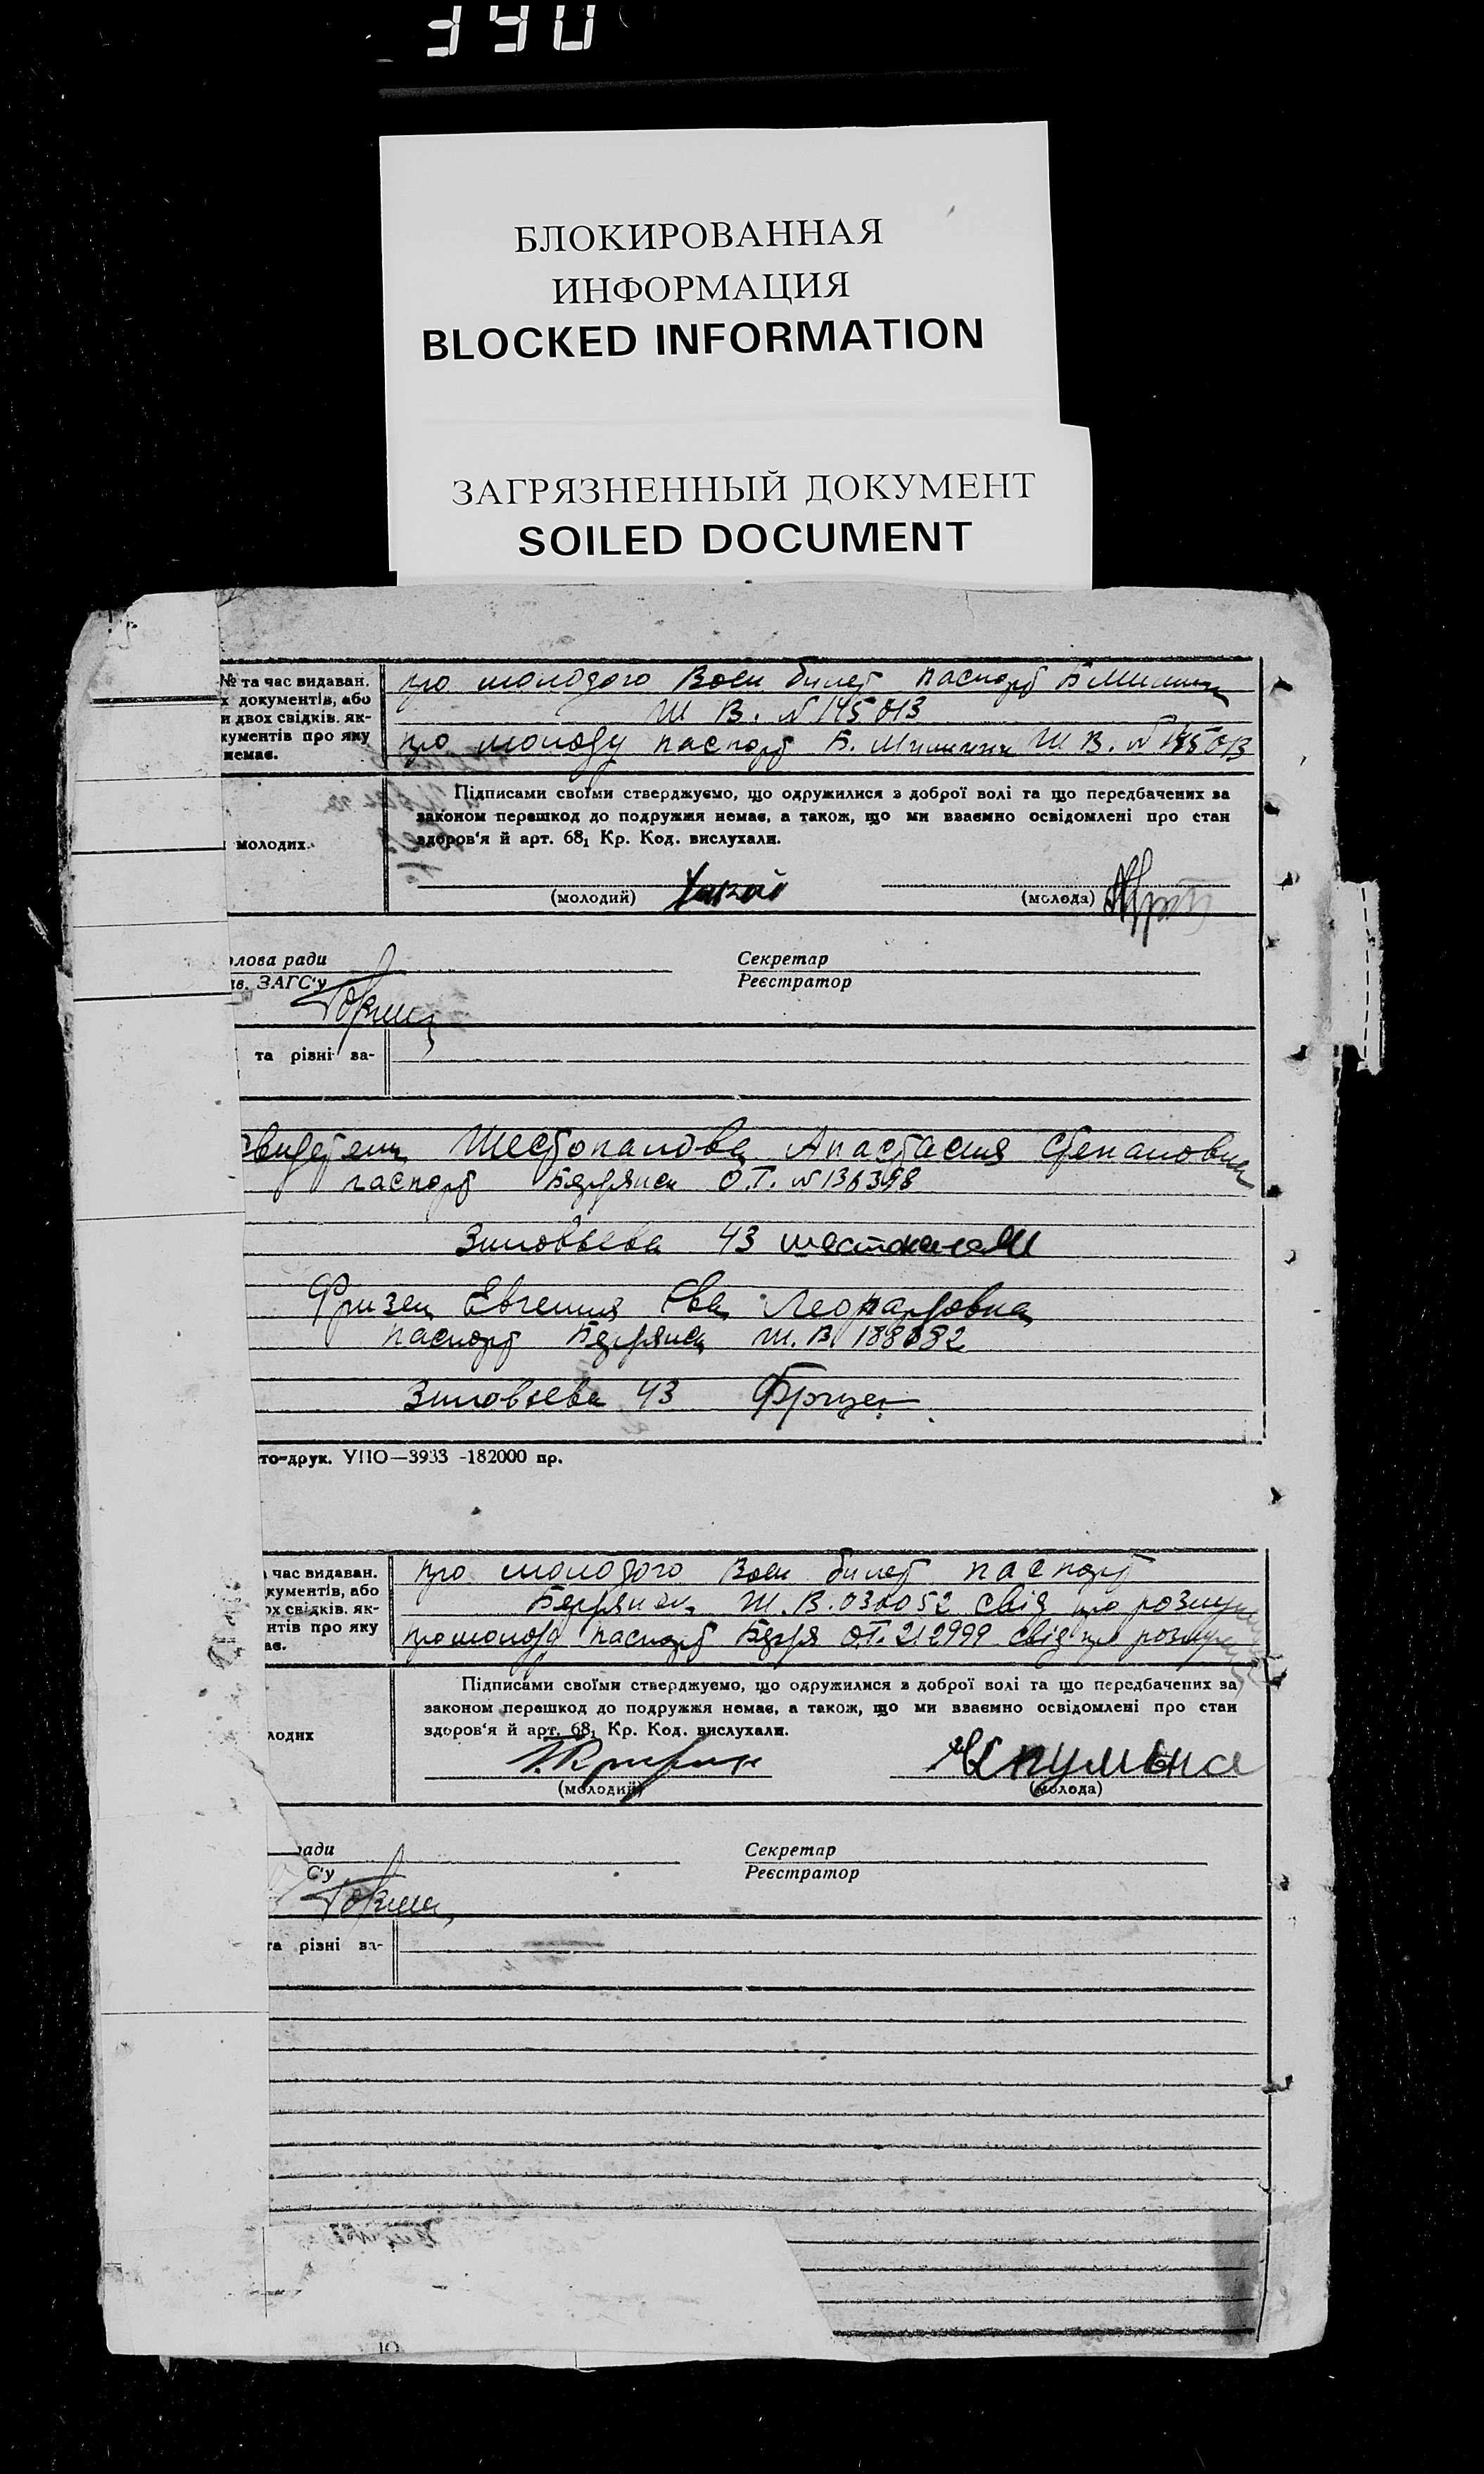 390
БЛОКИРОВАННАЯ
ИНФОРМАЦИЯ
BLOCKED INFORMATION
ЗАГРЯЗНЕННЫЙ ДОКУМЕНТ
SOILED DOCUMENT
№ та час видаван.
х документів, або
и двох свідків. як-
кументів про яку
немає.
про молодого Воен билет паспорт
Ш В. № 145013
про молоду паспорт Б. Ш В. №
Підписами своїми стверджуємо, що одружилися з доброї волі та що передбачених за
законом перешкод до подружжя немає, а також, що ми взаємно освідомлені про стан
здоров'я й арт. 68₁ Кр. Код. вислухали.
молодих.
(молодий)
(молода)
олова ради
Секретар
ів. ЗАГС'у
Реєстратор
та різні ва-
свидетели Шестопалова Анастасия Степановна
паспорт Бердянск О.Т. № 136398
Зиновьева 43
Фризен Евгения Ева Леонардовна
паспорт Бердянск Ш.В. 188682
Зиновьева 43 Фризен
то-друк. УПО—3933 -182000 пр.
час видаван.
кументів, або
ох свідків. як-
нтів про яку
ає.
про молодого Воен билет паспорт
Бердянск Ш.В. 030052 свід про
про молоду паспорт Бердя О.Т. 212999 свід про
Підписами своїми стверджуємо, що одружилися з доброї волі та що передбачених за
законом перешкод до подружжя немає, а також, що ми взаємно освідомлені про стан
здоров'я й арт. 68₁ Кр. Код. вислухали.
лодих
(молодий)
(молода)
ради
Секретар
С'у
Реєстратор
та різні ва-
10